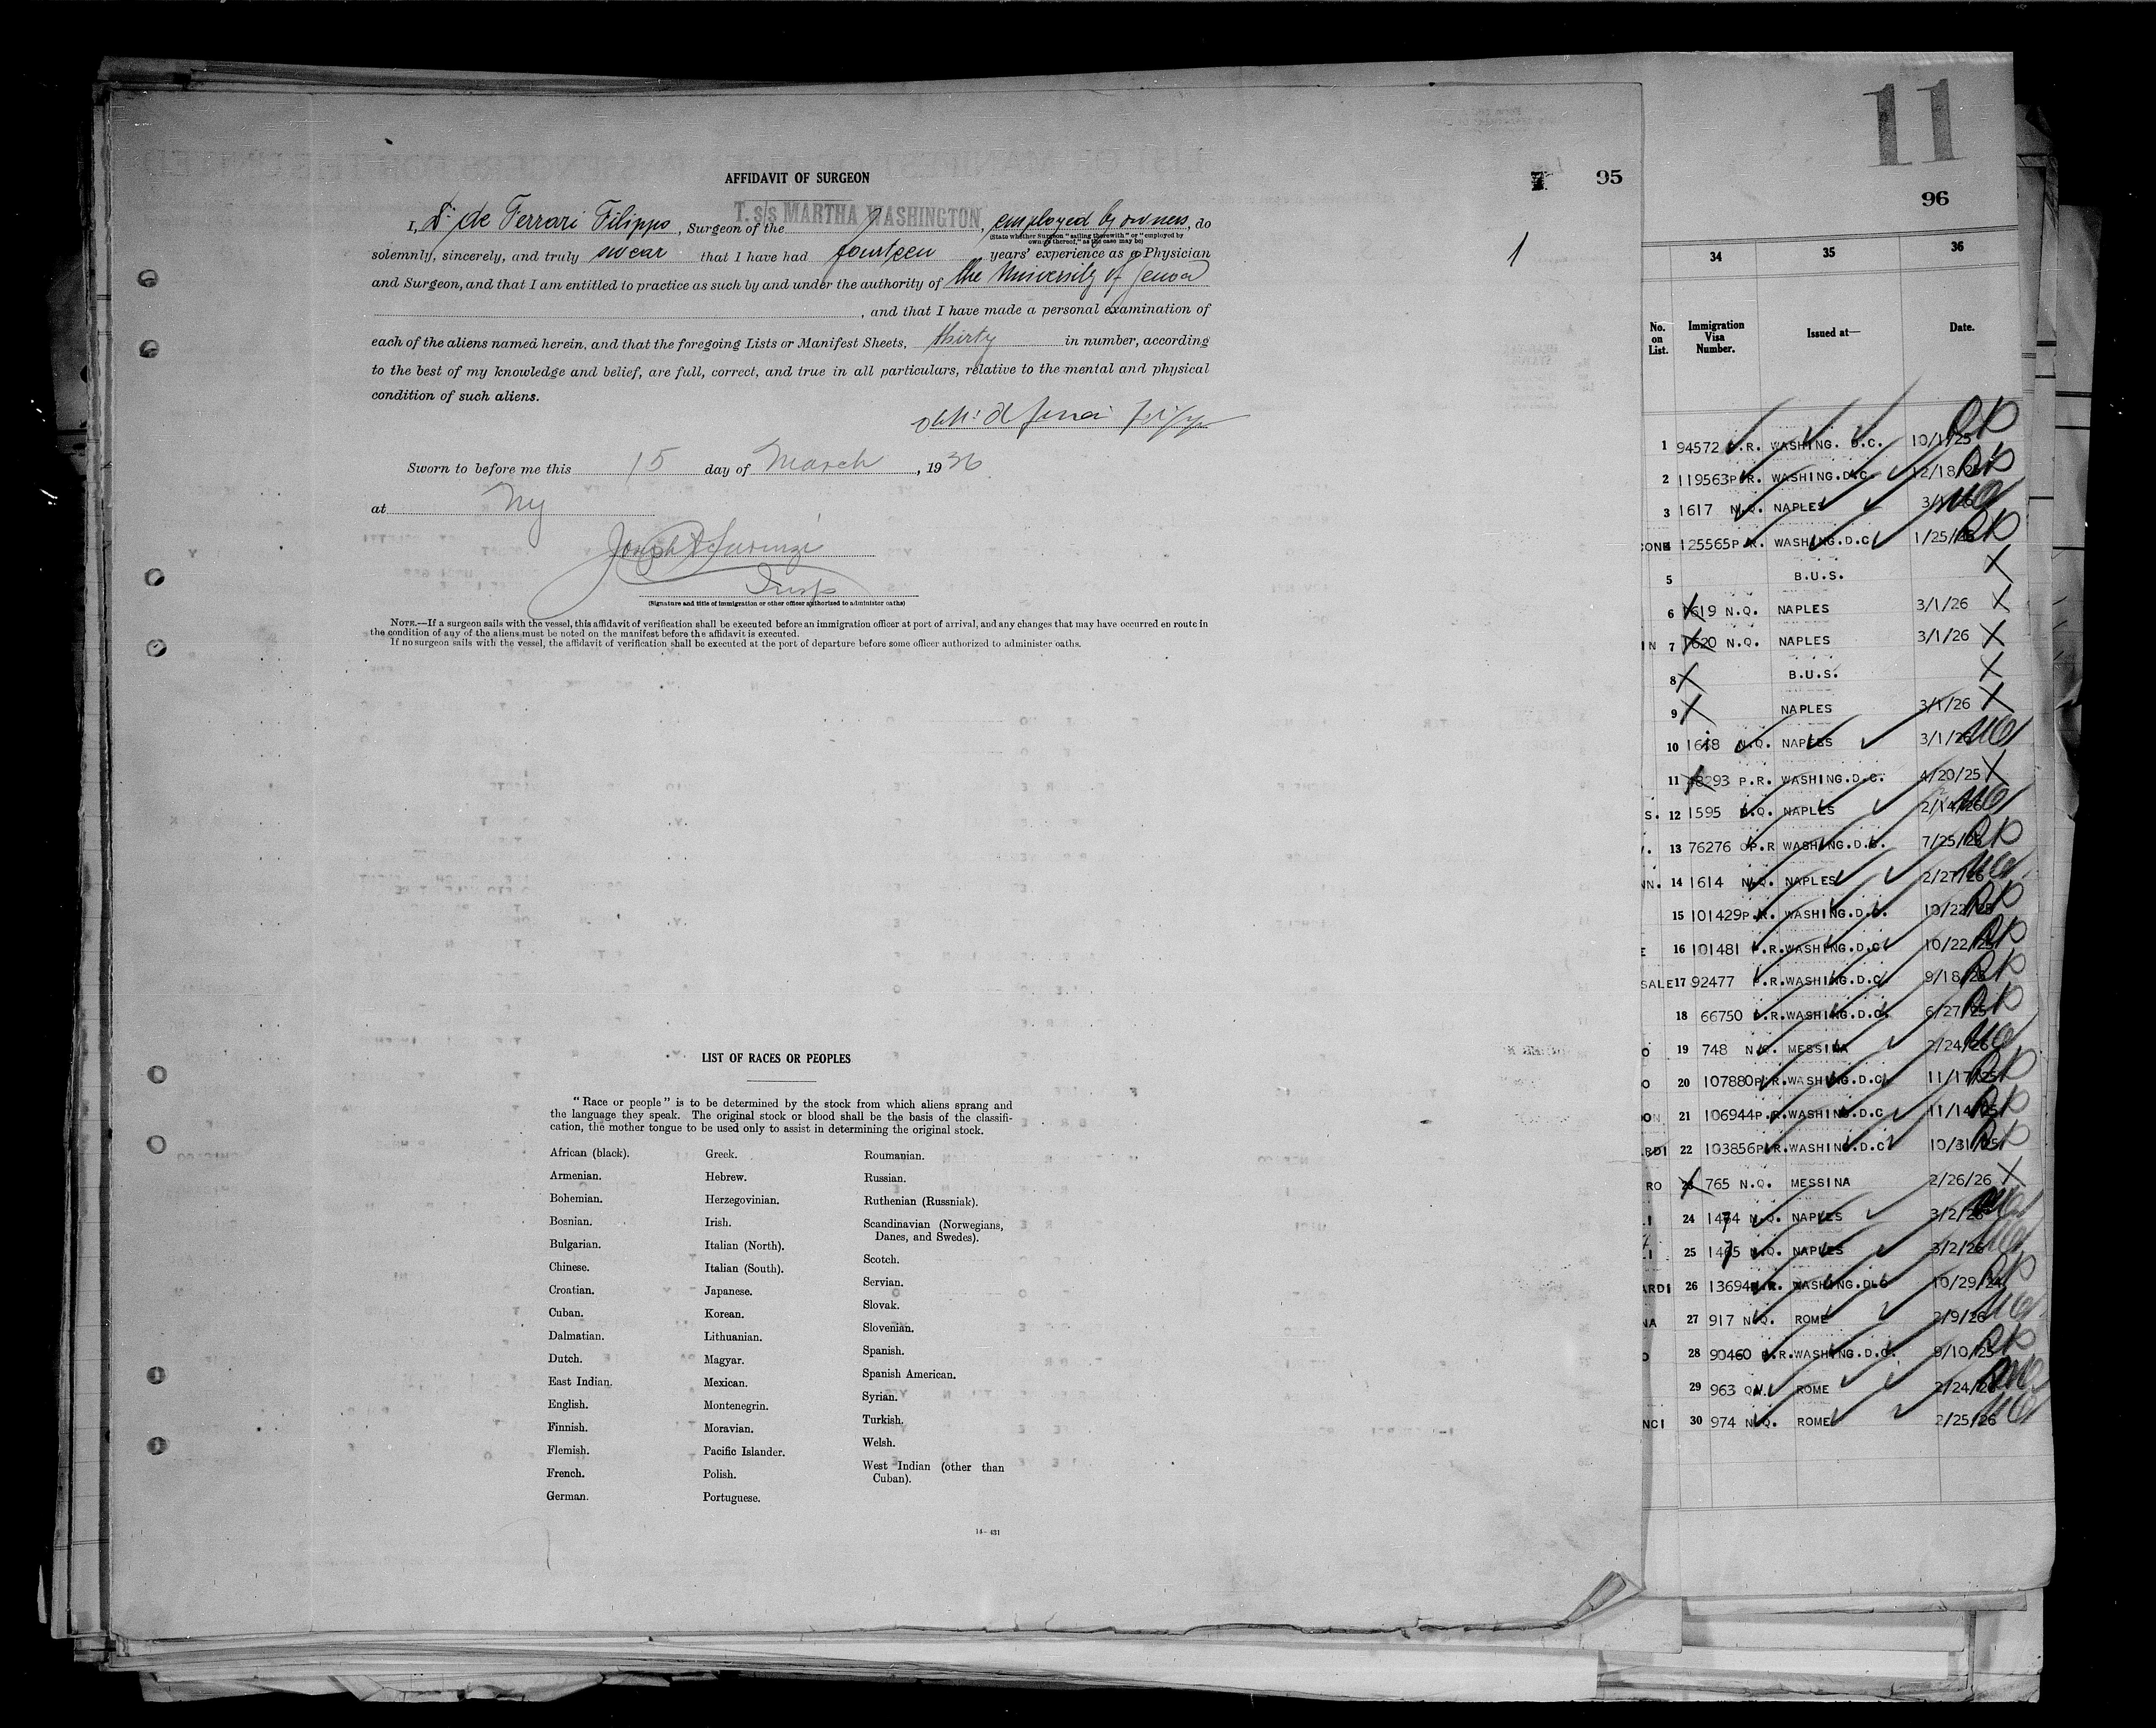 11
95
96
AFFIDAVIT OF SURGEON
T. s/s MARTHA WASHINGTON
I, Dr de Ferrari Filippo, Surgeon of the , employed by owners, do
(State whether Surgeon "sailing therewith" or "employed by
owners thereof," as the case may be)
1
solemnly, sincerely, and truly swear that I have had fourteen years' experience as a Physician
and Surgeon, and that I am entitled to practice as such by and under the authority of the University of Genoa
, and that I have made a personal examination of
each of the aliens named herein, and that the foregoing Lists or Manifest Sheets, thirty in number, according
to the best of my knowledge and belief, are full, correct, and true in all particulars, relative to the mental and physical
condition of such aliens.
Sworn to before me this 15 day of March, 1926
at NY
Insp
(Signature and title of immigration or other officer authorized to administer oaths)
NOTE.—If a surgeon sails with the vessel, this affidavit of verification shall be executed before an immigration officer at port of arrival, and any changes that may have occurred en route in
the condition of any of the aliens must be noted on the manifest before the affidavit is executed.
If no surgeon sails with the vessel, the affidavit of verification shall be executed at the port of departure before some officer authorized to administer oaths.
LIST OF RACES OR PEOPLES
"Race or people" is to be determined by the stock from which aliens sprang and
the language they speak. The original stock or blood shall be the basis of the classifi-
cation, the mother tongue to be used only to assist in determining the original stock.
African (black).
Armenian.
Bohemian.
Bosnian.
Bulgarian.
Chinese.
Croatian.
Cuban.
Dalmatian.
Dutch.
East Indian.
English.
Finnish.
Flemish.
French.
German.
Greek.
Hebrew.
Herzegovinian.
Irish.
Italian (North).
Italian (South).
Japanese.
Korean.
Lithuanian.
Magyar.
Mexican.
Montenegrin.
Moravian.
Pacific Islander.
Polish.
Portuguese.
Roumanian.
Russian.
Ruthenian (Russniak).
Scandinavian (Norwegians,
Danes, and Swedes).
Scotch.
Servian.
Slovak.
Slovenian.
Spanish.
Spanish American.
Syrian.
Turkish.
Welsh.
West Indian (other than
Cuban).
14-431
34 35 36
No. on List. Immigration Visa Number. Issued at— Date.
1 94572 P.R. WASHING. D.C. 10/1/25
2 119563 P.R. WASHING.D.C. 12/18/25
3 1617 N.Q. NAPLES 3/1/26
4 125565 P.R. WASHING.D.C. 1/25/26
5 B.U.S. X
6 1619 N.Q. NAPLES 3/1/26 X
IN 7 1620 N.Q. NAPLES 3/1/26 X
8 B.U.S. X
9 NAPLES 3/1/26 X
10 1618 N.Q. NAPLES 3/1/26
11 48293 P.R. WASHING.D.C. 4/20/25 X
S. 12 1595 N.Q. NAPLES 2/14/26
13 76276 P.R WASHING.D.C. 7/25/25
NN. 14 1614 N.Q. NAPLES 2/27/26
15 101429 P.R. WASHING.D.C. 10/22/25
E 16 101481 P.R. WASHING.D.C. 10/22/25
SALE 17 92477 P.R. WASHING.D.C. 9/18/25
18 66750 P.R. WASHING.D.C. 6/27/25
O 19 748 N.Q. MESSINA 2/24/26
O 20 107880 P.R. WASHING.D.C. 11/17/25
ON 21 106944 P.R. WASHING.D.C. 11/14/25
RDI 22 103856 P.R. WASHING.D.C. 10/31/25
RO 23 765 N.Q. MESSINA 2/26/26 X
LI 24 1474 N.Q. NAPLES 3/2/26
LI 25 1475 N.Q. NAPLES 3/2/26
ARDI 26 13694 P.R. WASHING.D.C 10/29/24
NA 27 917 N.Q. ROME 2/9/26
O 28 90460 P.R. WASHING.D.C. 9/10/25
29 963 ROME 2/24/26
NCI 30 974 N.Q. ROME 2/25/26